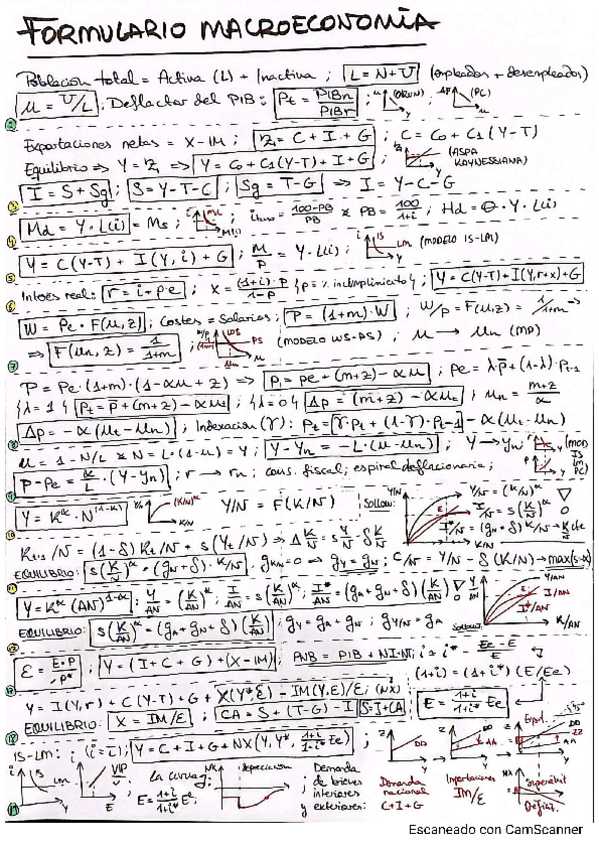 FORMULARIO MACROECONOMÍA
Población total = Activa (L) + Inactiva ; L = N + U (empleados + desempleados)
u = U/L ; Deflactor del PIB: Pt = PIBn/PIBr ; u (OKUN) ; Δp (PC)
Exportaciones netas = X - IM ; Z = C + I + G ; C = C0 + C1 (Y-T)
Equilibrio => Y = Z => Y = C0 + C1(Y-T) + I + G ; (ASPA KAYNESIANA)
I = S + Sg ; S = Y - T - C ; Sg = T - G => I = Y - C - G
Md = Y · L(i) = Ms ; i = (100 - PB)/PB × PB = 100/(1+i) ; Hd = θ · Y · L(i)
Y = C(Y-T) + I(Y, i) + G ; M/P = Y · L(i) ; i IS LM Y (MODELO IS-LM)
Interés real: r = i - pe ; X = (1+i)·p/(1-p) {p = % incumplimiento} ; Y = C(Y-T) + I(Y, r+x) + G
W = Pe · F(u, z) ; Costes = Salarios ; P = (1+m) · W ; W/P = F(u, z) = 1/1+m
=> F(un, z) = 1/1+m ; W/P WS PS un u (MODELO WS-PS) ; u → un (MP)
P = Pe · (1+m) · (1 - αu + z) => Pt = pe + (m+z) - αu ; pe = λp̄ + (1-λ) · Pt-1
{λ = 1} Pt = p̄ + (m+z) - αut ; {λ = 0} Δp = (m+z) - αut ; un = (m+z)/α
Δp = -α(ut - un) ; Indexación (γ): Pt = [γ·Pt + (1-γ)·Pt-1] - α(ut - un)
u = 1 - N/L × N = L · (1-u) = Y ; Y - Yn = -L · (u - un) ; Y → Yn (MOD IS LM PC)
p - pe = α/L · (Y - Yn) ; r → rn ; cons. fiscal ; espiral deflacionaria ;
Y = K^α · N^(1-α) ; Y/N (K/N)^α K/N Y/N = F(K/N) Sollow: Y/N Y/N = (K/N)^α
I/N = s(K/N)^α
I*/N = (gN + δ) K/N
K/N
Kt+1/N = (1-δ) Kt/N + s(Yt/N) => Δ K/N = s Y/N - δ K/N
EQUILIBRIO: s(K/N)^α = (gN + δ) · K/N ; gK/N = 0 => gY = gN ; C/N = Y/N - δ(K/N) → max(s-α)
Y = K^α (AN)^1-α ; Y/AN = (K/AN)^α ; I/AN = s(K/AN)^α ; I*/AN = (gA + gN + δ)(K/AN) Y/AN
I/AN
I*/AN
EQUILIBRIO: s(K/AN)^α = (gA + gN + δ)(K/AN) ; gY = gA + gN ; gY/N = gA Sollow K/AN
ε = E·P/P* ; Y = (I + C + G) + (X - IM) ; PNB = PIB + NI ; i = i* - (Ee - E)/E
(1+i) = (1+i*)(E/Ee)
Y = I(Y, r) + C(Y-T) + G + X(Y*, ε) - IM(Y, ε)/ε ; (NX)
EQUILIBRIO: X = IM/ε ; CA = S + (T-G) - I S = I + CA E = (1+i)/(1+i*) Ee
IS-LM: (i = i̅) ; Y = C + I + G + NX(Y, Y*, (1+i)/(1+i*) Ee)
i IS LM Y i E La curva J E = (1+i)/(1+i*) Ee NX depreciación Demanda de bienes interiores y exteriores: Demanda nacional C+I+G Importaciones IM/ε Superávit Déficit
Z DD Y Z DD AA Y Expl. 45º DD ZZ AA NX
Escaneado con CamScanner